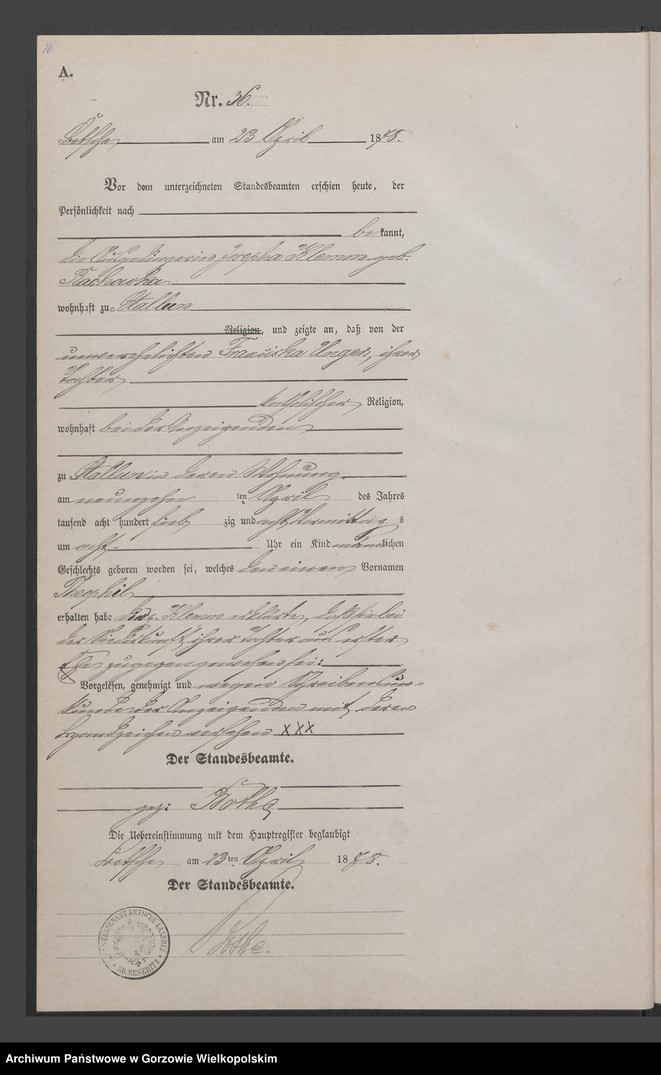 36
A.
Nr. 36.
Betsche am 23 April 1878.
Vor dem unterzeichneten Standesbeamten erschien heute, der
Persönlichkeit nach
be kannt,
die Josepha Klemm geb.
wohnhaft zu Stallun
Religion, und zeigte an, daß von der
unverehelichten Franziska Unger, ihrer
Tochter
katholischer Religion,
wohnhaft bei der Anzeigenden
zu Stallun in deren Wohnung
am neunzehn ten April des Jahres
tausend acht hundert sieb zig und acht Vormittag s
um acht Uhr ein Kind männlichen
Geschlechts geboren worden sei, welches den einen Vornamen
Theophil
erhalten habe. Klemm erklärte, daß sie bei
der Niederkunft ihrer Tochter aus erster
Ehe zugegen gewesen sei:
Vorgelesen, genehmigt und wegen Schreibensun-
kunde der Anzeigenden mit deren
Handzeichen versehen XXX
Der Standesbeamte.
gez: Bothe
Die Uebereinstimmung mit dem Hauptregister beglaubigt
Betsche am 23ten April 1878.
Der Standesbeamte.
Bothe.
Archiwum Państwowe w Gorzowie Wielkopolskim